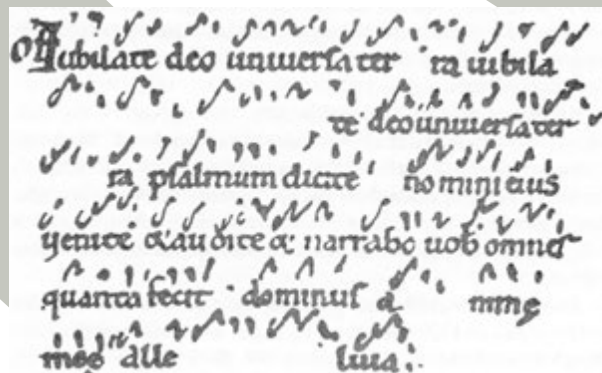 Iubilate deo universa ter ra iubila
te deo universa ter
ra psalmum dicite nomini eius
venite & audite & narrabo vob omnes
quanta fecit dominus a nime
meę alle luia: